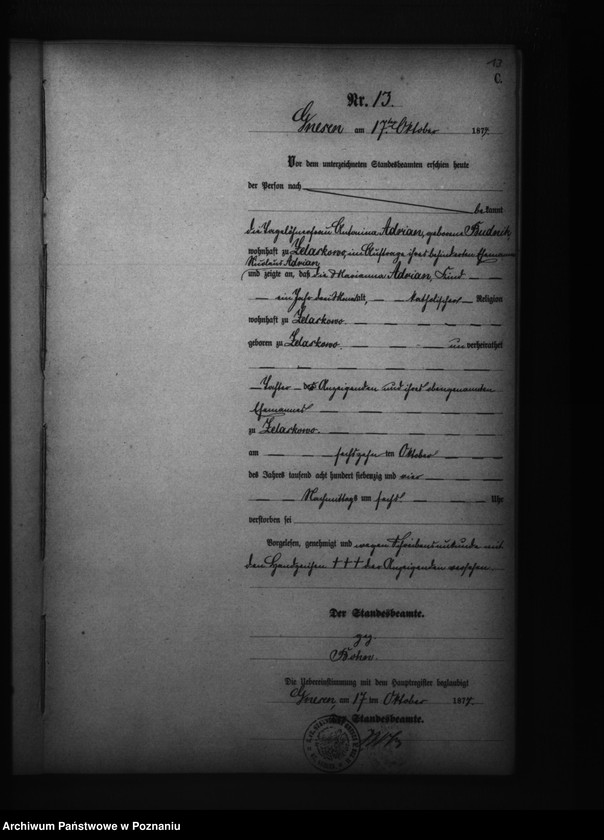 13
C.
Nr. 13.
Gnesen am 17ten Oktober 1874.
Vor dem unterzeichneten Standesbeamten erschien heute
der Person nach
bekannt
die Tagelöhnerfrau Antonina Adrian, geborene Budnik,
wohnhaft zu Zelaskowo, im Auftrage ihres behinderten Ehemannes
Nicolaus Adrian,
und zeigte an, daß die Marianna Adrian, Kind
ein Jahr drei Monat alt, katholischer Religion
wohnhaft zu Zelaskowo
geboren zu Zelaskowo unverheirathet
Tochter der Anzeigenden und ihres obengenannten
Ehemannes
zu Zelaskowo.
am sechszehn ten Oktober
des Jahres tausend acht hundert siebenzig und vier
Nachmittags um sechs Uhr
verstorben sei
Vorgelesen, genehmigt und wegen Schreibensunkunde mit
den Handzeichen +++ der Anzeigenden versehen
Der Standesbeamte.
gez.
Die Uebereinstimmung mit dem Hauptregister beglaubigt
Gnesen, am 17 ten Oktober 1874.
Der Standesbeamte.
Archiwum Państwowe w Poznaniu